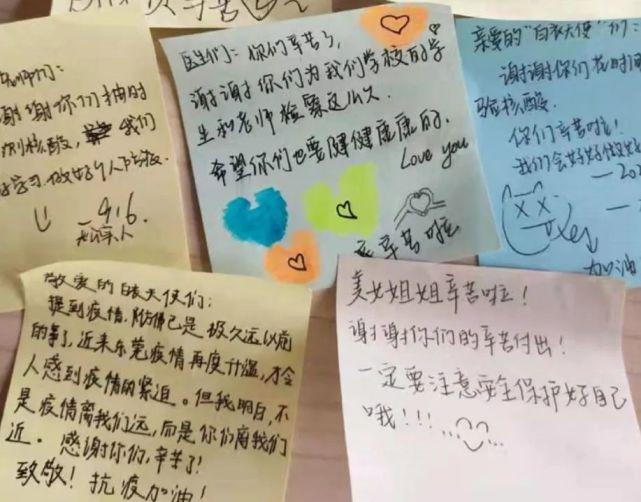 辛苦
师们：
谢谢你们抽时
核酸，我们
学习，做好个人防疫。
416.
全体人
医生们：你们辛苦了，
谢谢你们为我们学校的学
生和老师检察这么久
希望你们也要健健康康的.
Love you
辛苦啦
亲爱的“白衣天使”们：
谢谢你们花时间
验核酸。
你们辛苦啦！
我们会好好做好
——202
加油
敬爱的白衣天使们：
提到疫情，仿佛已是极久远以前
的事了，近来东莞疫情再度升温，才令
人感到疫情的紧迫。但我明白，不
是疫情离我们远，而是你们离我们
近。感谢你们，辛苦了！
致敬！抗疫加油！
美女姐姐辛苦啦！
谢谢你们的辛苦付出！
一定要注意安全保护好自己
哦！！！